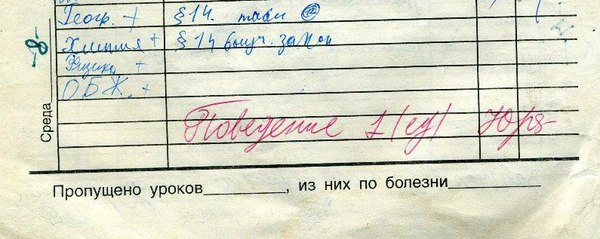 Геогр. + § 14. табл (12)
Химия + § 14 выуч. закон
Физика +
ОБЖ. +
-8-
Среда
Поведение 1 (ед)
Пропущено уроков________, из них по болезни________